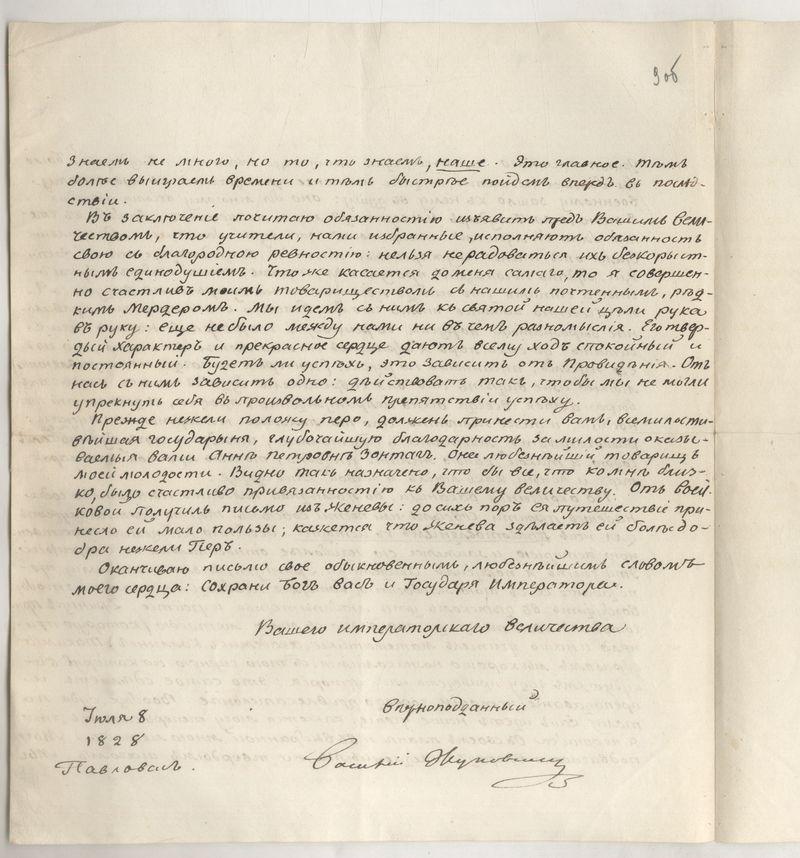 9об
Знаемъ не много, но то, что знаемъ, наше. Это главное. Тѣмъ
болѣе выиграемъ времени и тѣмъ быстрѣе пойдемъ впередъ въ послѣд-
ствіи.
Въ заключеніе почитаю обязанностію изъявить предъ Вашимъ Вели-
чествомъ, что учители, нами избранные, исполняютъ обязанность
свою съ благородною ревностію: нельзя нерадоваться ихъ безкорыст-
нымъ единодушіемъ. Что же касается до меня самаго, то я совершен-
но счастливъ моимъ товариществомъ съ нашимъ почтеннымъ, рѣд-
кимъ Мердеромъ. Мы идемъ съ нимъ къ святой нашей цѣли рука
въ руку: еще не было между нами ни въ чемъ разномыслія. Его твер-
дый характеръ и прекрасное сердце даютъ всему ходъ спокойный и
постоянный. Будетъ ли успѣхъ, это зависитъ отъ Провидѣнія. Отъ
насъ съ нимъ зависитъ одно: дѣйствовать такъ, чтобы мы не могли
упрекнуть себя въ произвольномъ препятствіи успѣху.
Прежде нежели положу перо, долженъ принести вамъ, всемилости-
вѣйшая государыня, глубочайшую благодарность за милости оказы-
ваемыя вами Аннѣ Петровнѣ Зонтагъ. Она любезнѣйшій товарищъ
моей молодости. Видно такъ назначено, что бы все, что ко мнѣ близ-
ко, было счастливо привязанностію къ Вашему величеству. Отъ Воей-
ковой получилъ письмо изъ Женевы: до сихъ поръ ея путешествіе при-
несло ей мало пользы; кажется что Женева здѣлаетъ ей болѣе до-
бра нежели Гіеръ.
Оканчиваю письмо свое обыкновеннымъ, любезнѣйшимъ словомъ
моего сердца: Сохрани Богъ васъ и Государя Императора.
Вашего императорскаго величества
вѣрноподданный
Іюля 8
1828
Павловскъ.
Василій Жуковскій